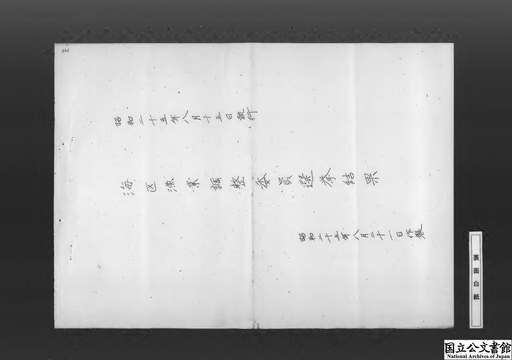 昭和二十五年八月十五日執行
海区漁業調整委員選挙結果
昭和二十五年八月二十一日作製
裏面白紙
国立公文書館
National Archives of Japan